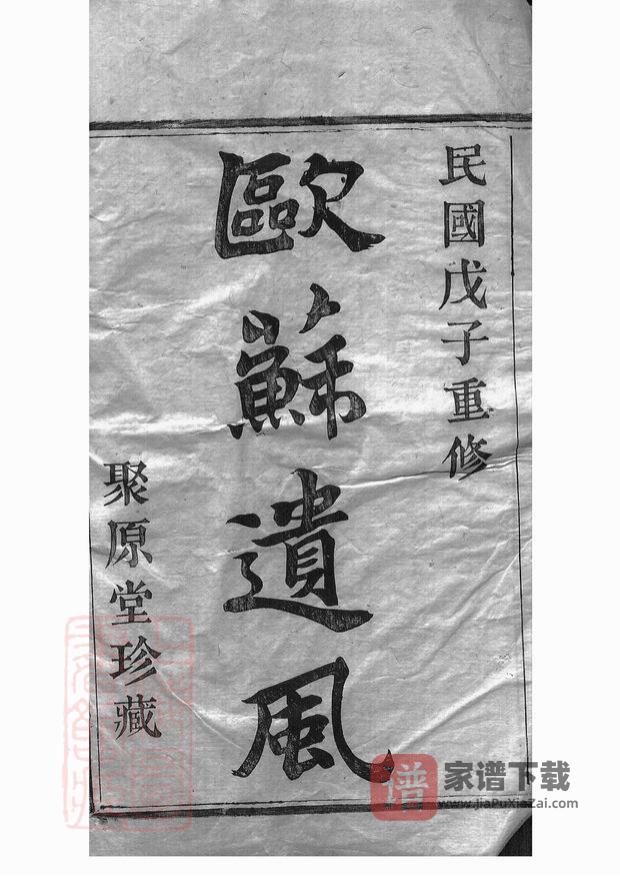 民國戊子重修
歐蘇遺風
聚原堂珍藏
谱 家谱下载
www.jiaPuXiaZai.com